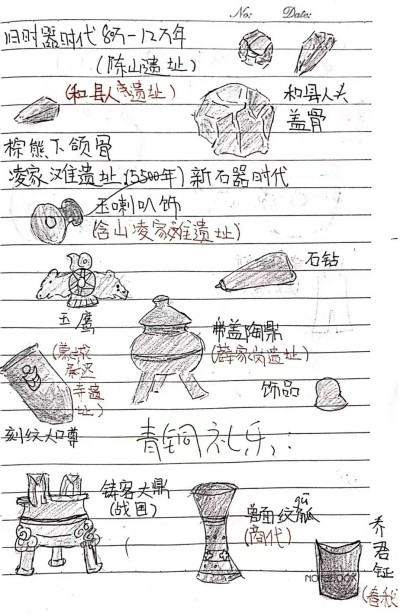 No: Date:
旧时器时代 80万-12万年
(陈山遗址)
(和县人遗址)
和县人头
盖骨
棕熊下颌骨
凌家滩遗址(5500年)新石器时代
玉喇叭饰
(含山凌家滩遗址)
石钻
玉鹰
带盖陶鼎
(薛家岗遗址)
(蒙城
尉迟
寺遗
址)
饰品
刻纹大口尊
青铜礼乐:
铸客大鼎
(战国)
gū
兽面纹觚
(商代)
乔君钲
(春秋)
NOTEBOOK